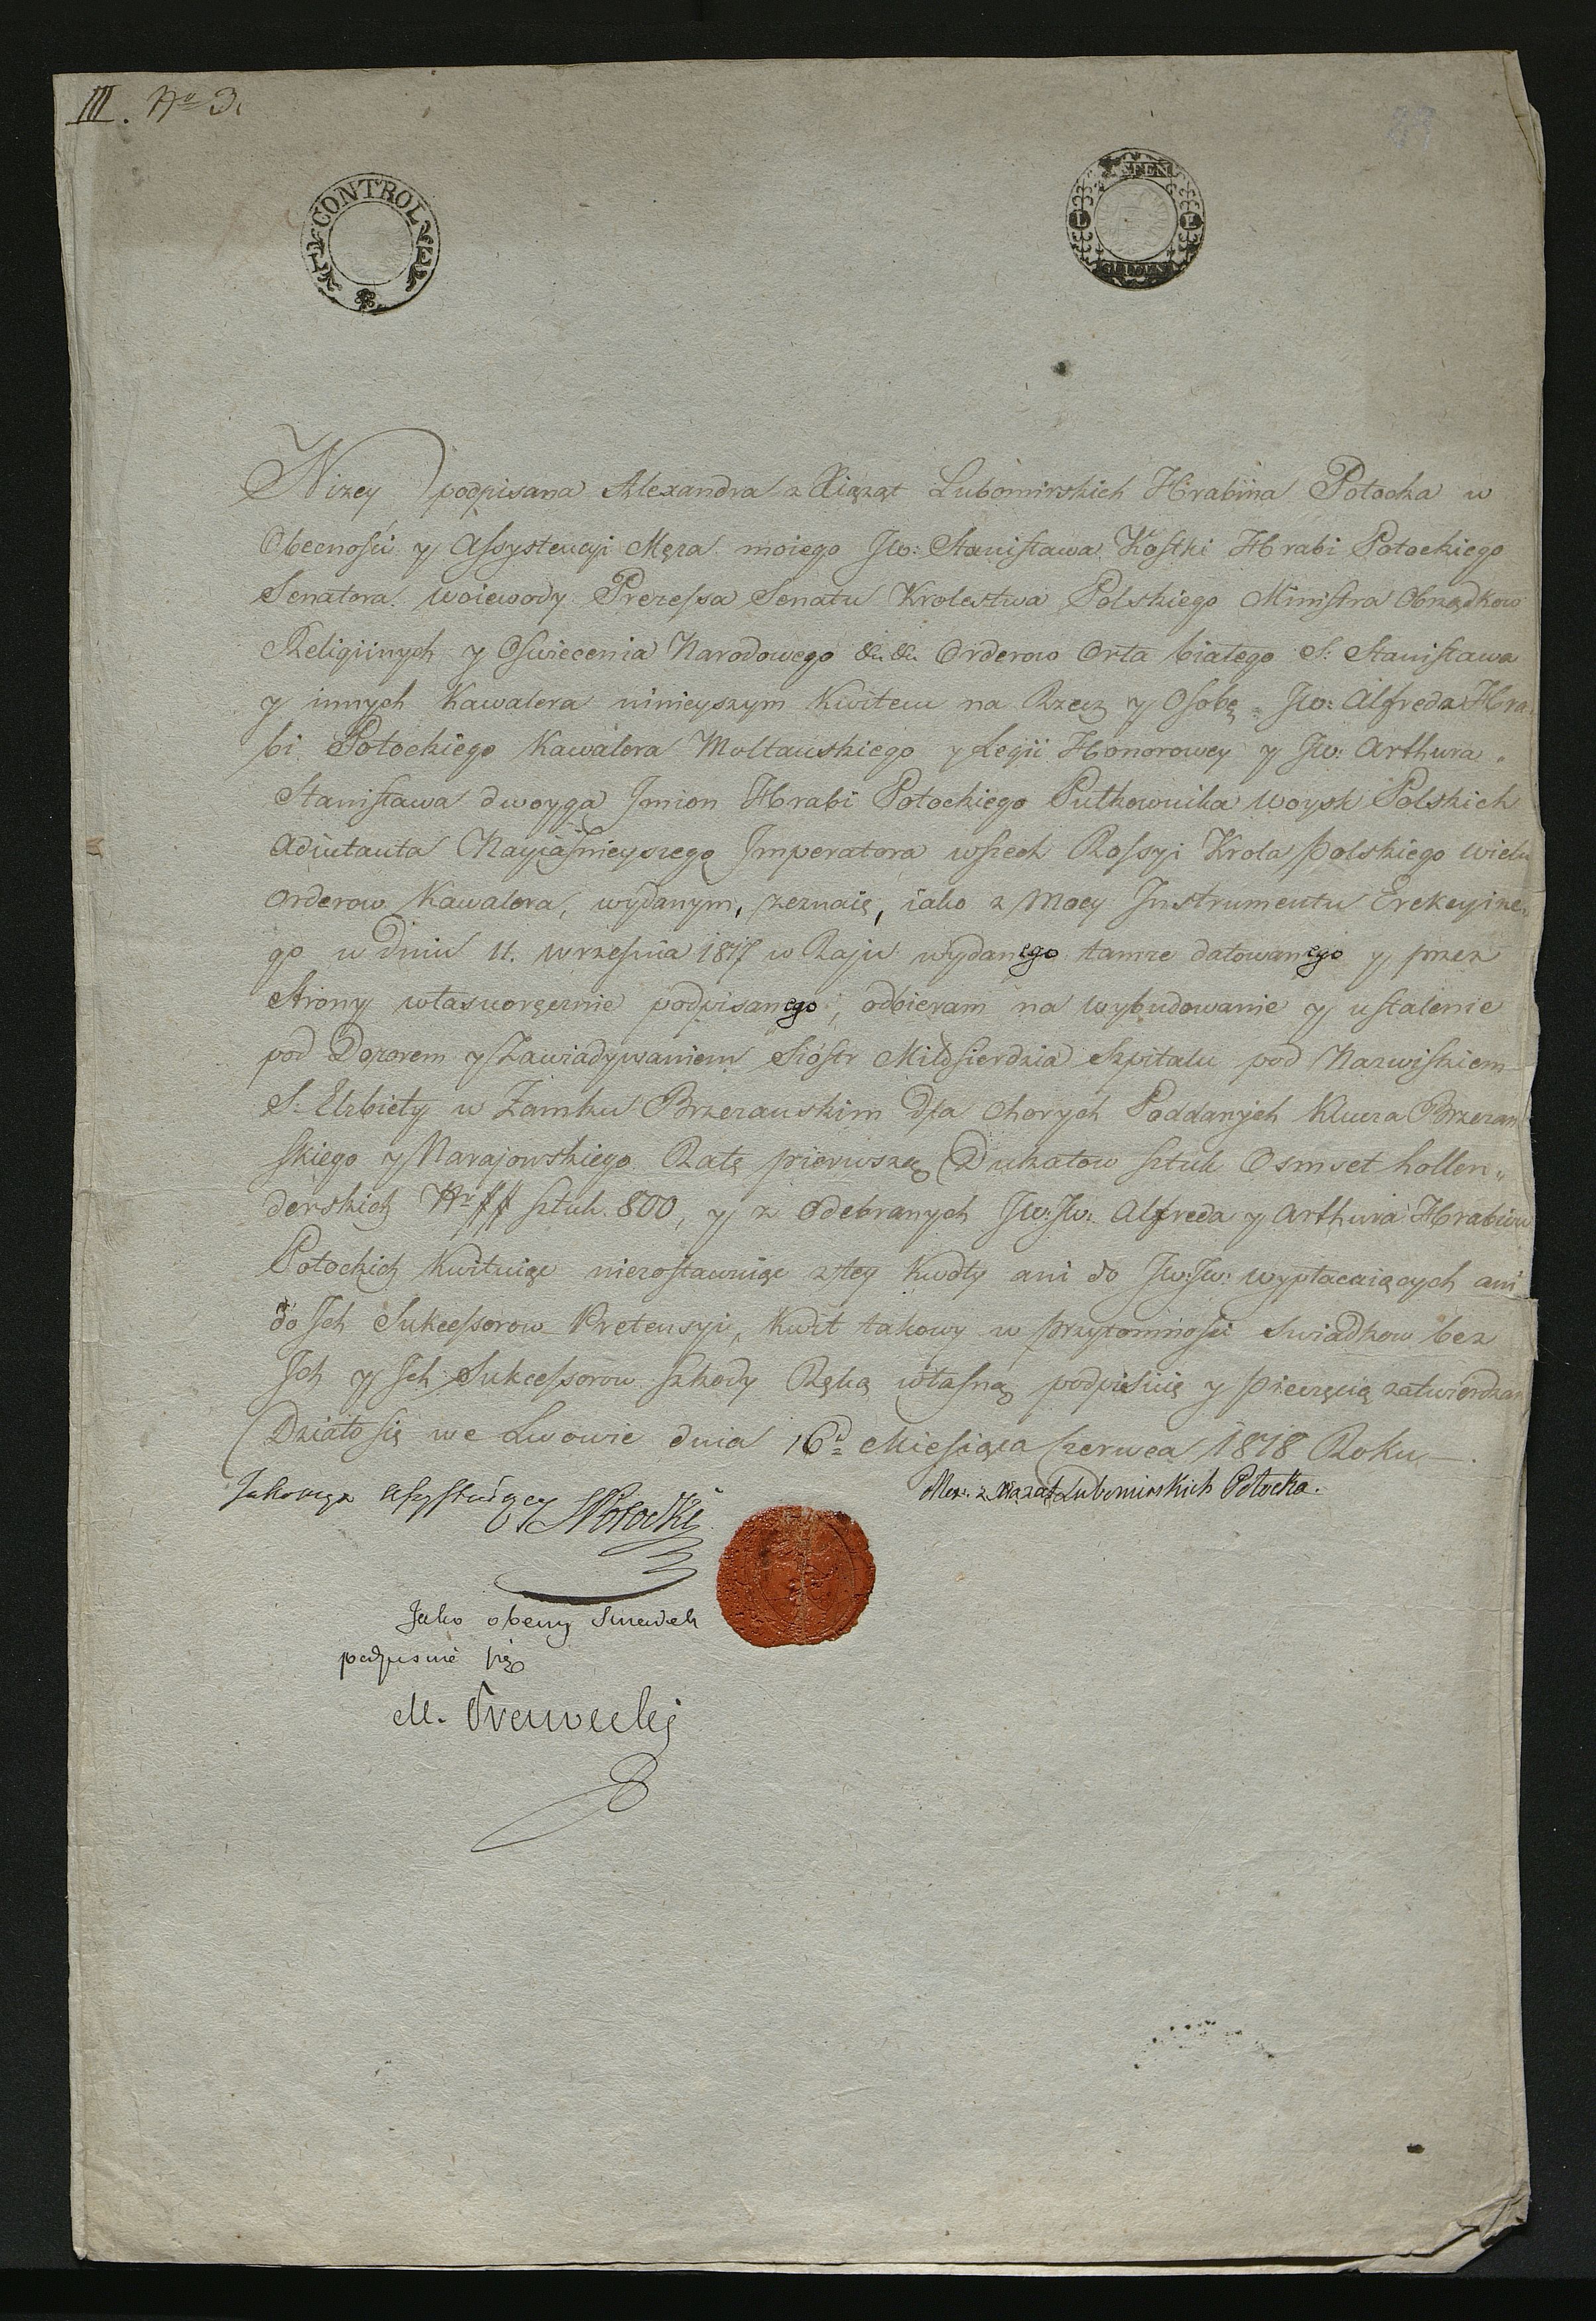 III. No 3.
CONTROL
STEN
L L
Nizey podpisana Alexandra z Xiąząt Lubomirskich Hrabina Potocka w
Obecności y Assystencyi Męza moiego Jw: Stanisława Kostki Hrabi Potockiego
Senatora Woiewody Prezessa Senatu Krolestwa Polskiego Ministra Obrządkow
Religiinych y Oswiecenia Narodowego &c &c Orderow Orła białego S: Stanisława
y innych Kawalera ninieyszym Kwitem na Rzecz y Osobę Jw: Alfreda Hra„
bi Potockiego Kawalera Moltauskiego y Legii Honorowey y Jw: Arthura„
Stanisława dwoyga Jmion Hrabi Potockiego Pułkownika Woysk Polskich
Adiutanta Nayiaśnieyszego Jmperatora wszech Rossyi Krola Polskiego wielu
Orderow Kawalera, wydanym, zeznaię, iako z Mocy Jnstrumentu Erekcyine„
go w Dniu 11. Września 1817 w Raju wydanego tamze datowanego y przez
Strony własnoręcznie podpisanego, odbieram na wybudowanie y ustalenie
pod Dozorem y Zawiadywaniem Sióstr Miłosierdzia Szpitalu pod Nazwiskiem
S: Elzbiety w Zamku Brzezanskim Dla chorych Poddanych Klucza Brzezan
skiego y Narajowskiego Ratę pierwszą Dukatow sztuk Osmset hollen„
derskich Nro ## sztuk 800, y z Odebranych Jw:Jw: Alfreda y Arthura Hrabiow
Potockich Kwituiąc niezostawuiąc z tey Kwoty ani do Jw:Jw: wypłacaiących ani
do Jch Sukcessorow Pretensyi, Kwit takowy w przytomności Swiadkow bez
Jch y Jch Sukcessorow Szkody Ręką własną podpisuię y Pieczęcią zatwierdzam
Działo się we Lwowie dnia 16d Miesiąca Czerwca 1818 Roku.
Alex: z Xiaząt Lubomirskich Potocka.
Jako mąz assystuiący SPotocki
Jako obecny Swiadek
podpisuie się
M.